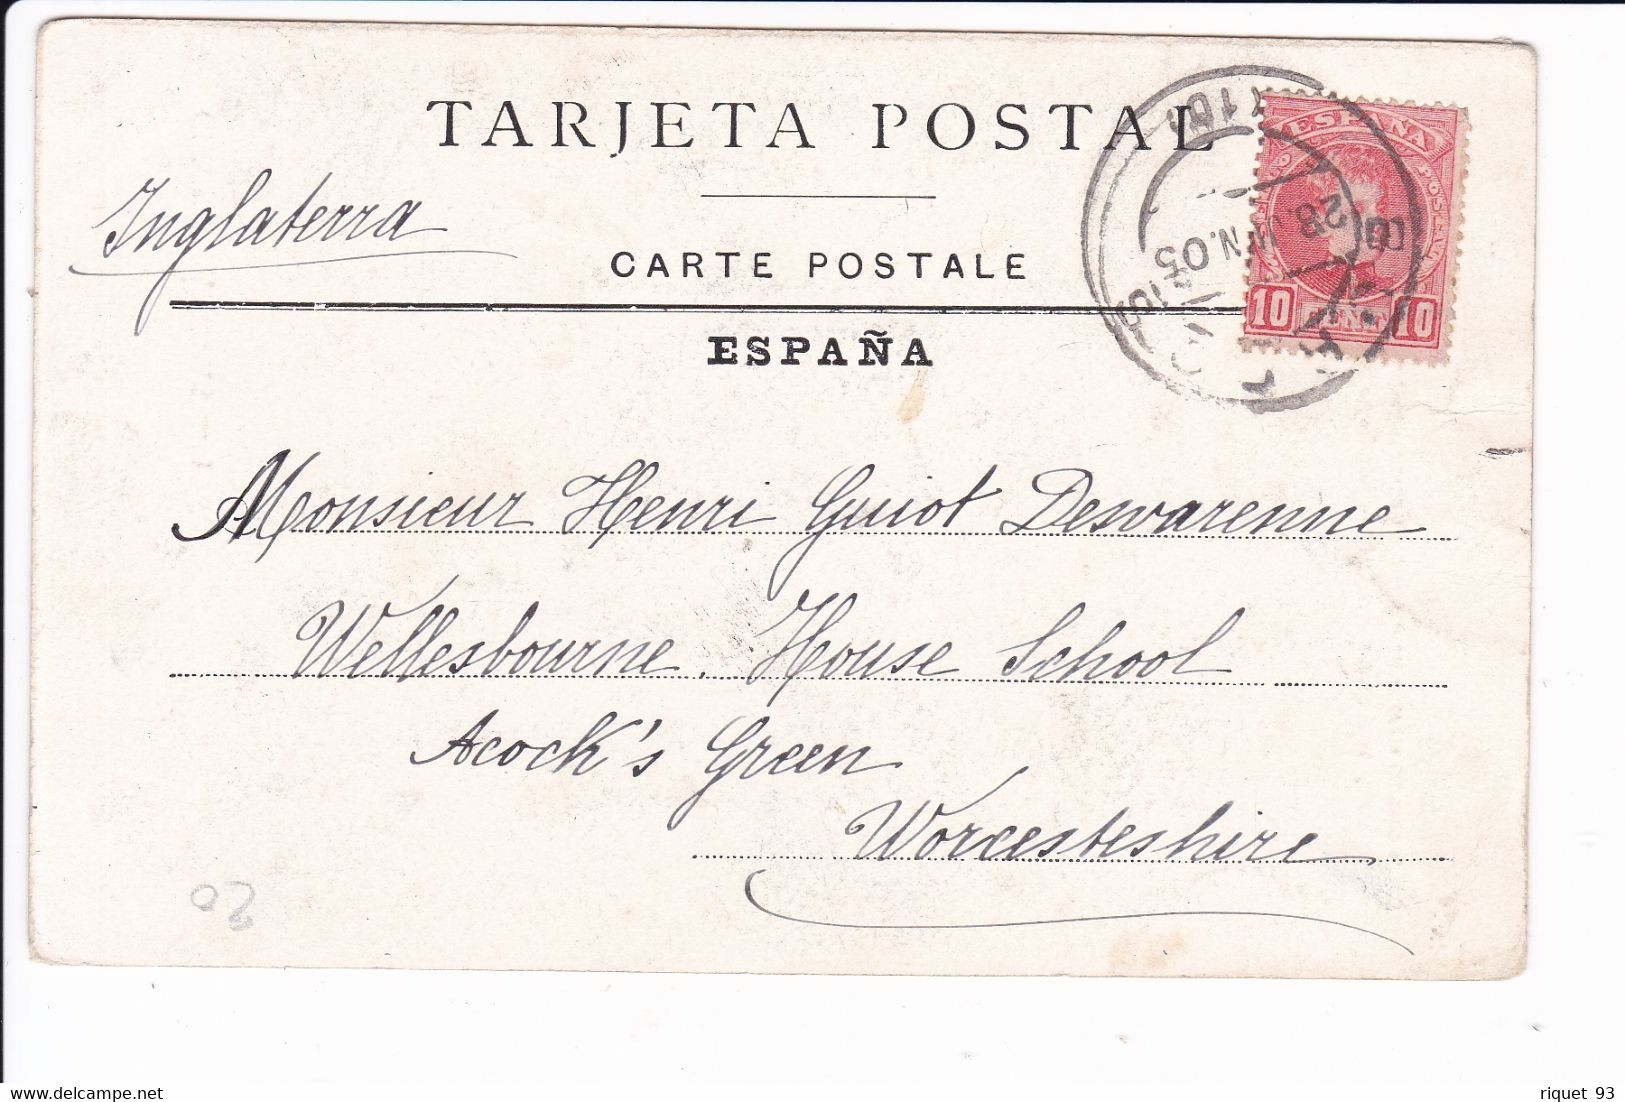 TARJETA POSTAL
Inglaterra
CARTE POSTALE
ESPAÑA
ESPAÑA
28 JUN.05
10 CENT 10
Monsieur Henri Guiot Desvarenne
Wellesbourne House School
Acock's Green
Worcesteshire
02
riquet 93